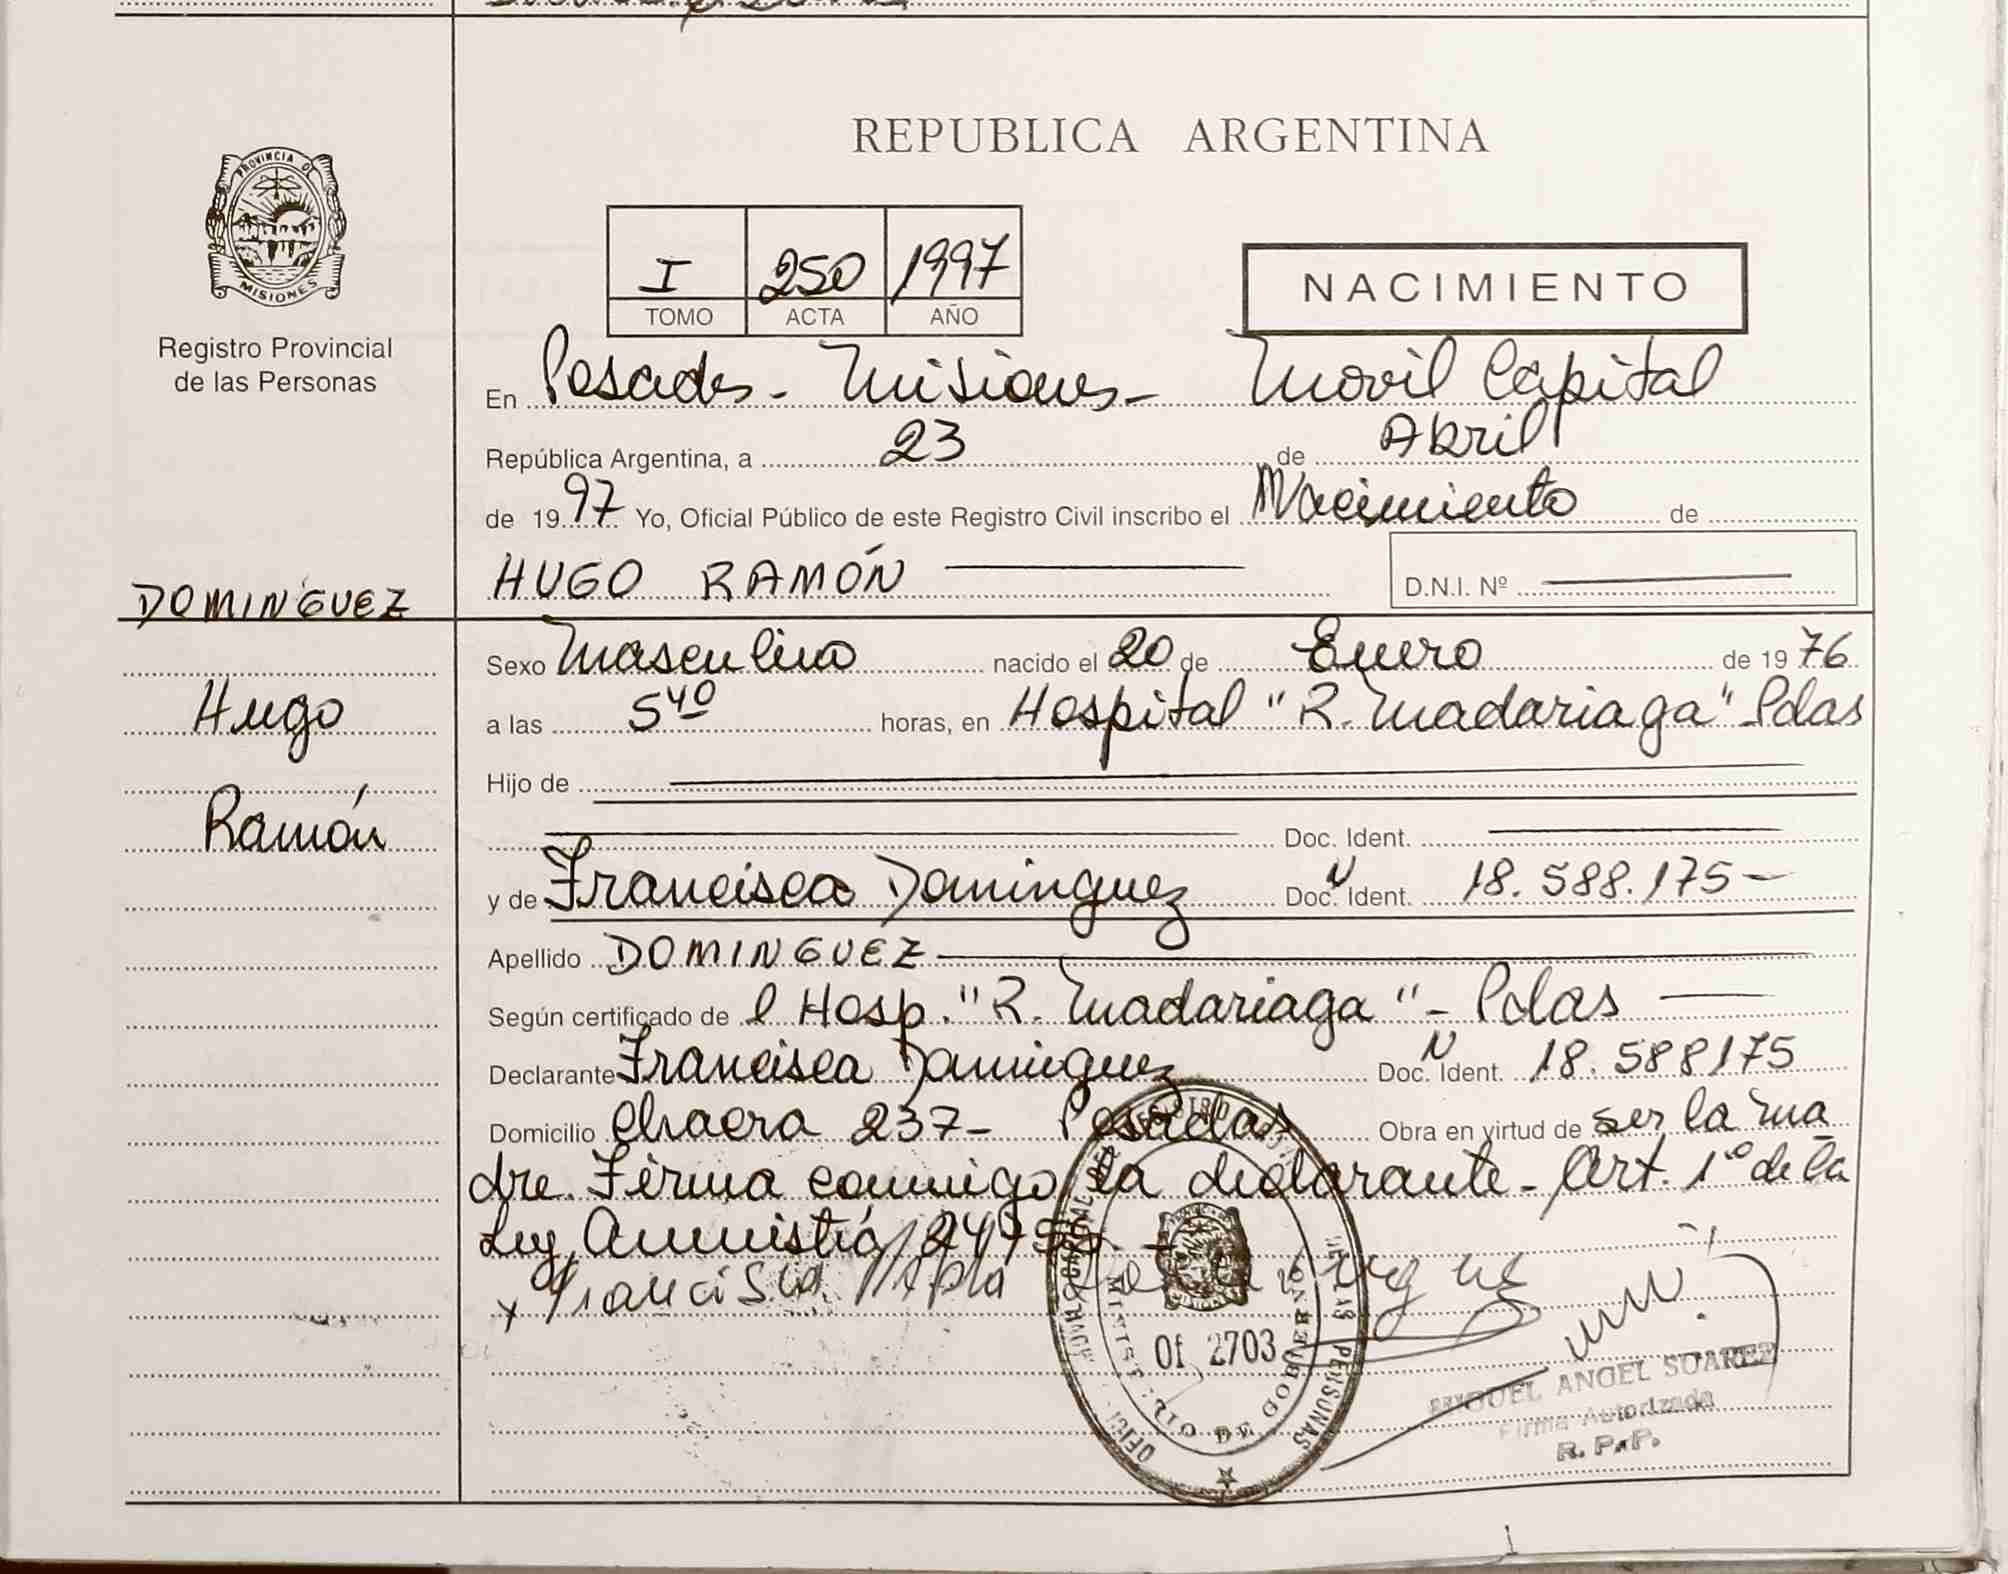 REPUBLICA ARGENTINA
PROVINCIA DE
MISIONES
Registro Provincial
de las Personas
I 250 1997
TOMO ACTA AÑO
NACIMIENTO
En Posadas - Misiones - Movil Capital
República Argentina, a 23 de Abril
de 1997 Yo, Oficial Público de este Registro Civil inscribo el Nacimiento de
HUGO RAMÓN D.N.I. Nº
DOMINGUEZ
Hugo
Ramón
Sexo Masculino nacido el 20 de Enero de 1976
a las 5 40 horas, en Hospital "R. Madariaga" Pdas
Hijo de
Doc. Ident.
y de Francisca Dominguez Doc. N Ident. 18.588.175-
Apellido DOMINGUEZ
Según certificado de l Hosp. "R. Madariaga" - Pdas
Declarante Francisca Dominguez Doc. N Ident. 18.588175
Domicilio Chacra 237- Posadas Obra en virtud de ser la ma
dre. Firma conmigo la declarante - Art. 1º de la
Ley Amnistía 24755.-
x Francisca
Of 2703
MINISTERIO DE GOBIERNO
MIGUEL ANGEL SUAREZ
Firma Autorizada
R. P. P.